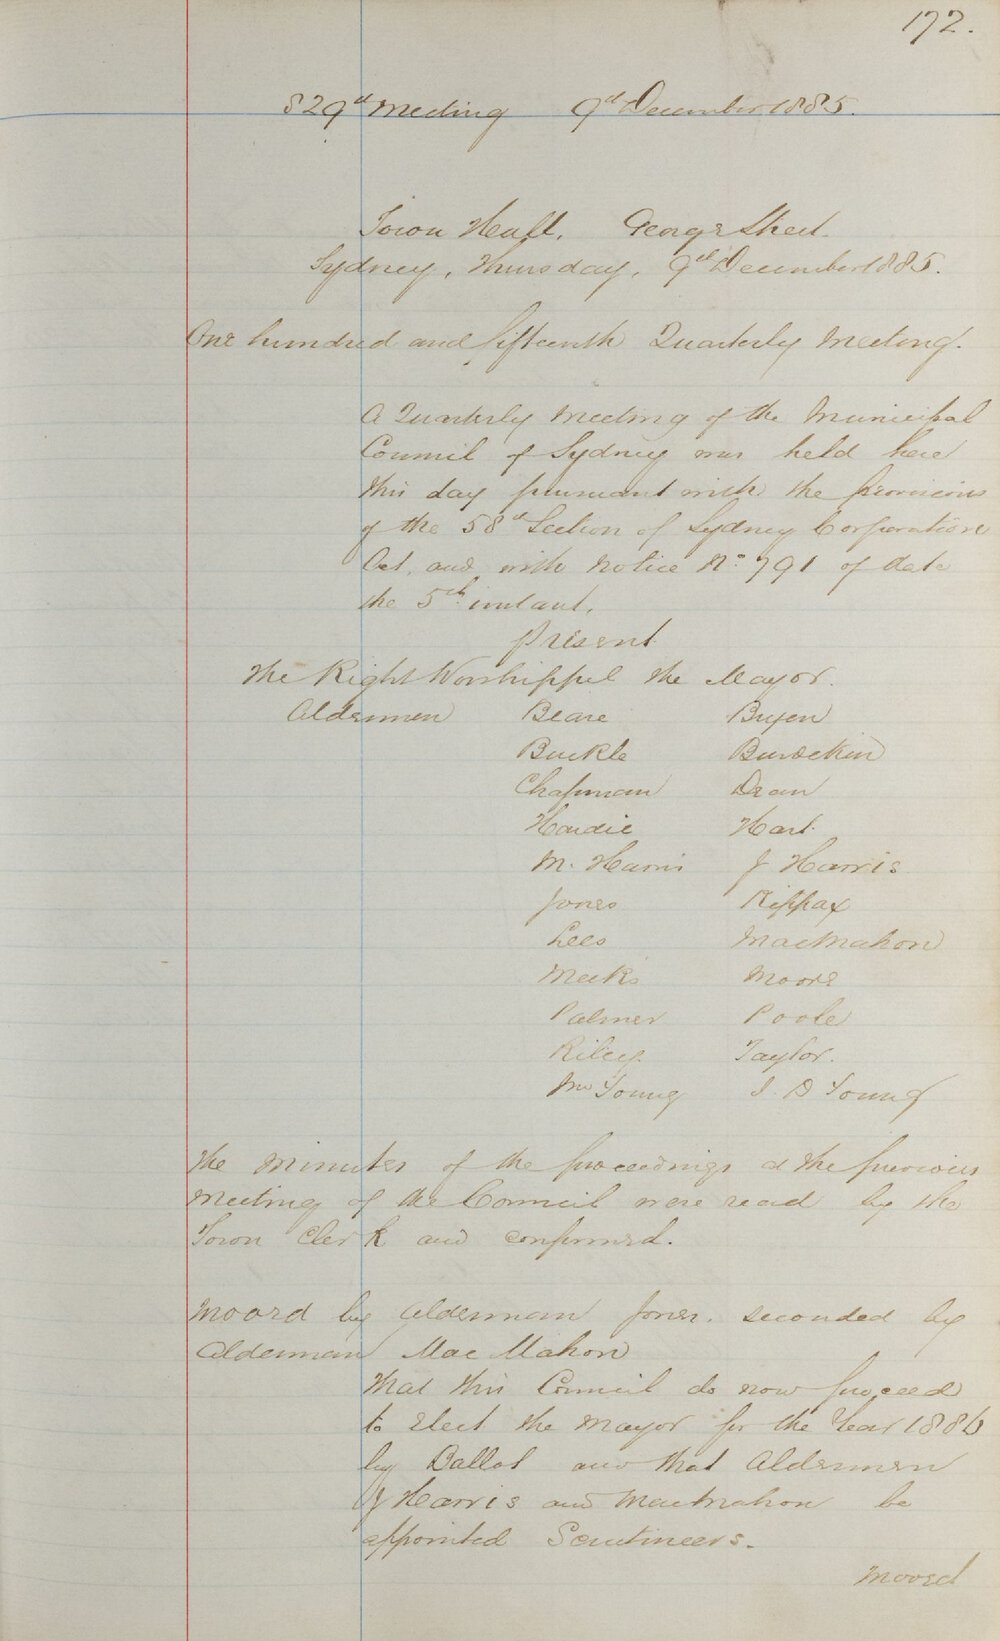 172.
829th Meeting 9th December 1885.
Town Hall, George Street.
Sydney, Thursday, 9th December 1885.
One hundred and fifteenth Quarterly Meeting.
A Quarterly Meeting of the Municipal
Council of Sydney was held here
this day pursuant with the provisions
of the 58th Section of Sydney Corporation
Act, and with Notice No. 791 of date
the 5th instant.
Present
The Right Worshippful the Mayor.
Aldermen Beare Buyen
Buckle Burdekin
Chapman Dean
Hardie Hart
M. Harris J Harris
Jones Kippax
Lees MacMahon
Meeks Moore
Palmer Poole
Riley. Taylor.
Wm Young J. D Young
The Minutes of the proceedings at the previous
meeting of the Council were read by the
Town Clerk and confirmed.
Moved by Alderman Jones. seconded by
Alderman Mac Mahon
That this Council do now proceed
to Elect the Mayor for the Year 1886
by Ballot and that Aldermen
J Harris and MacMahon be
appointed Scrutineers.
Moved